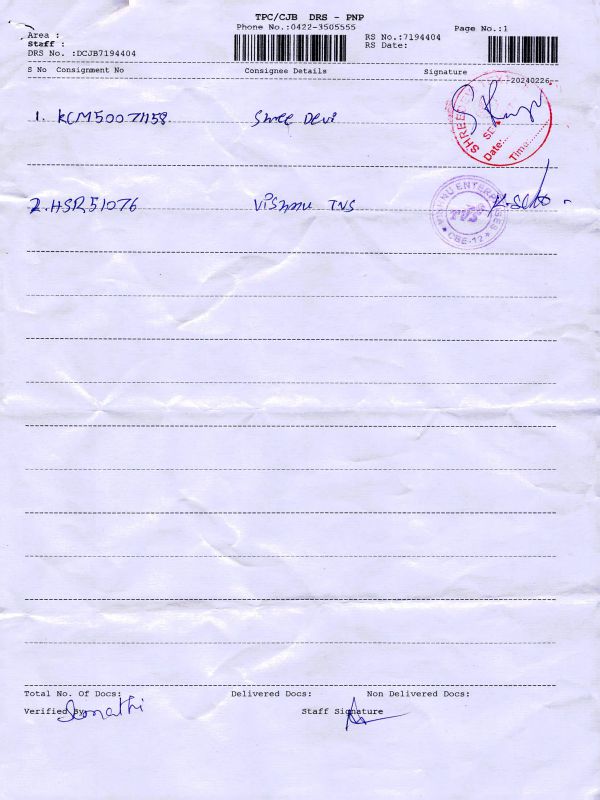 TPC/CJB DRS - PNP
Phone No.:0422-3505555
Page No.:1
Area :
Staff :
DRS No. :DCJB7194404
RS No.:7194404
RS Date:
S No Consignment No Consignee Details Signature
20240226
1. KCM500271158 Shree Devi
SHREE
Date:..
Time..........
2. HSR51076 Vishnu TVS
VISHNU ENTERPRISES
TVS
* CBE-12 *
Total No. Of Docs: Delivered Docs: Non Delivered Docs:
Verified By Staff Signature